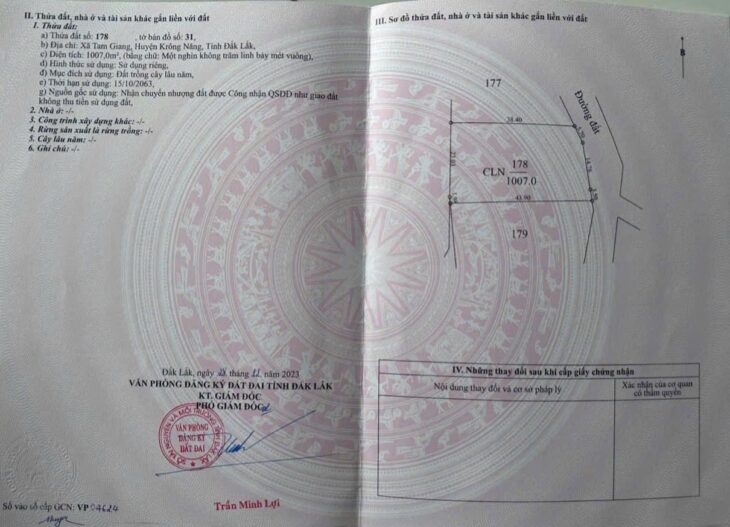 II. Thửa đất, nhà ở và tài sản khác gắn liền với đất
1. Thửa đất:
a) Thửa đất số: 178 , tờ bản đồ số: 31,
b) Địa chỉ: Xã Tam Giang, Huyện Krông Năng, Tỉnh Đắk Lắk,
c) Diện tích: 1007,0m², (bằng chữ: Một nghìn không trăm linh bảy mét vuông),
d) Hình thức sử dụng: Sử dụng riêng,
đ) Mục đích sử dụng: Đất trồng cây lâu năm,
e) Thời hạn sử dụng: 15/10/2063,
g) Nguồn gốc sử dụng: Nhận chuyển nhượng đất được Công nhận QSDĐ như giao đất
không thu tiền sử dụng đất,
2. Nhà ở: -/-
3. Công trình xây dựng khác: -/-
4. Rừng sản xuất là rừng trồng: -/-
5. Cây lâu năm: -/-
6. Ghi chú: -/-
Đắk Lắk, ngày tháng 11 năm 2023
VĂN PHÒNG ĐĂNG KÝ ĐẤT ĐAI TỈNH ĐẮK LẮK
KT. GIÁM ĐỐC
PHÓ GIÁM ĐỐC
VĂN PHÒNG
ĐĂNG KÝ
ĐẤT ĐAI
Trần Minh Lợi
Số vào sổ cấp GCN: VP 04624
III. Sơ đồ thửa đất, nhà ở và tài sản khác gắn liền với đất
B
177
Đường đất
38.40
CLN 178
1007.0
43.90
179
IV. Những thay đổi sau khi cấp giấy chứng nhận
Nội dung thay đổi và cơ sở pháp lý
Xác nhận của cơ quan
có thẩm quyền